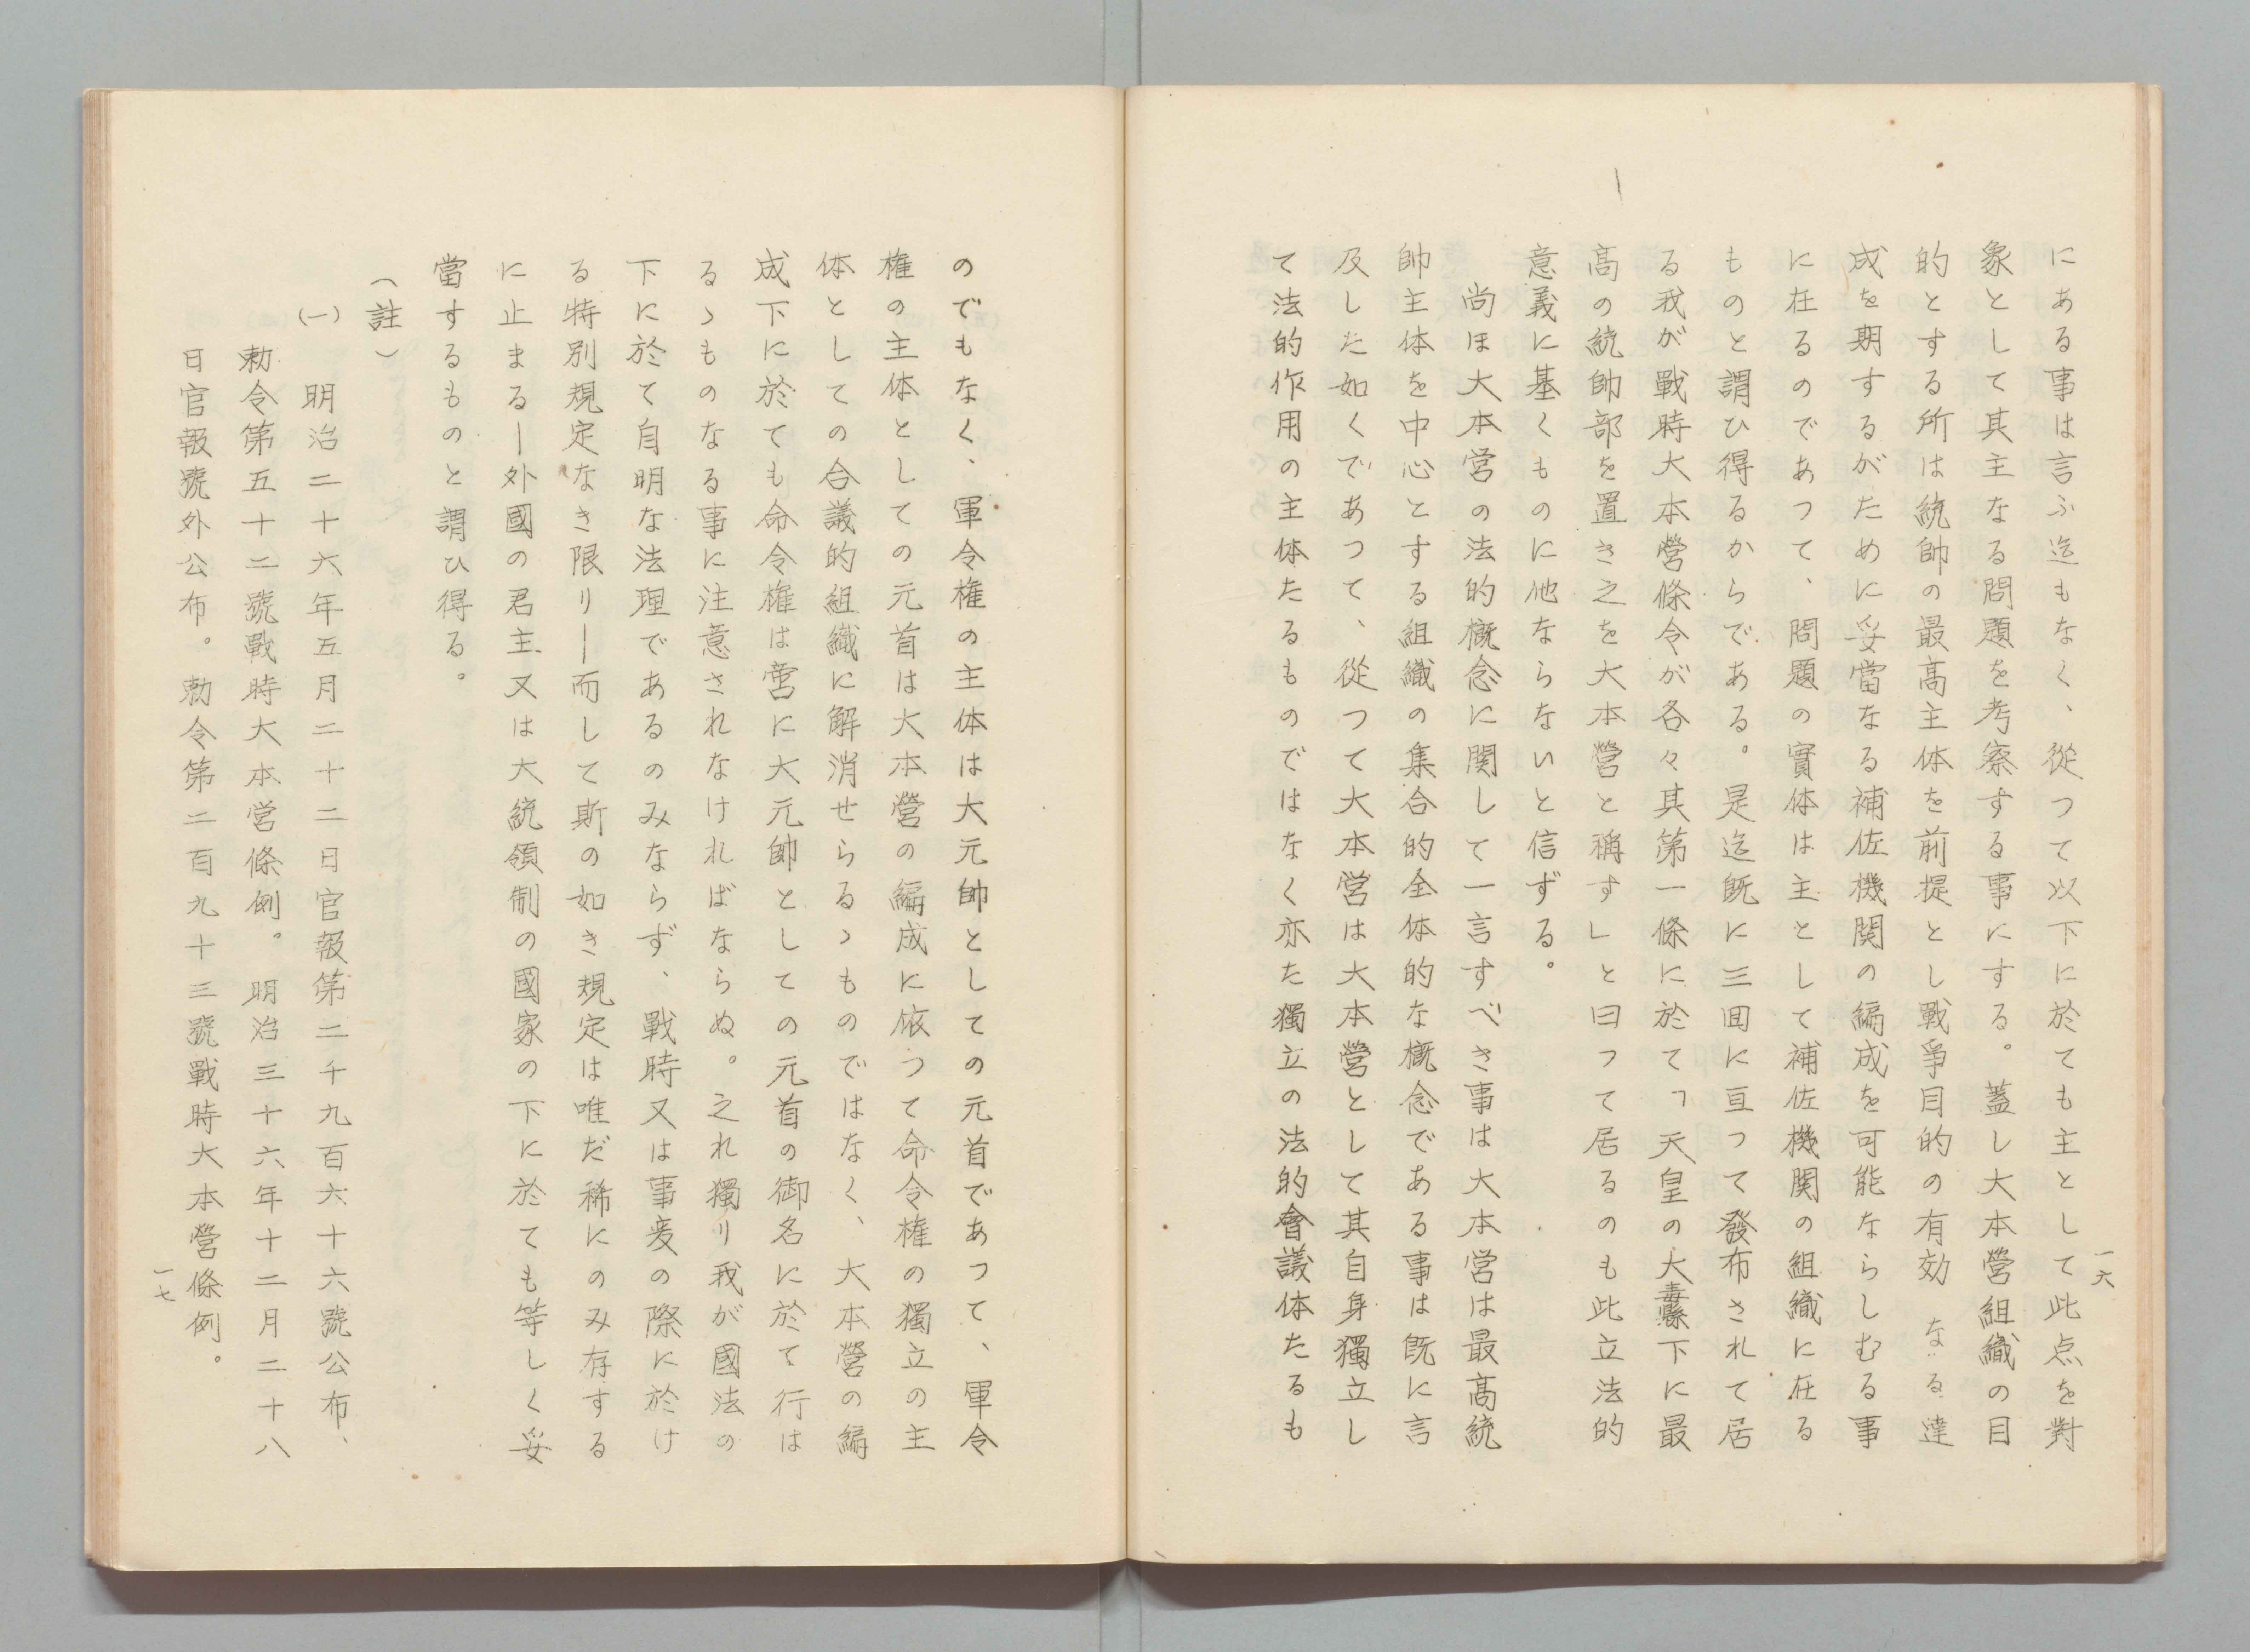 にある事は言ふ迄もなく、從つて以下に於ても主として此点を對
象として其主なる問題を考察する事にする。蓋し大本營組織の目
的とする所は統帥の最高主体を前提とし戰爭目的の有効なる達
成を期するがために妥當なる補佐機関の編成を可能ならしむる事
に在るのであつて、問題の實体は主として補佐機関の組織に在る
ものと謂ひ得るからである。是迄既に三囬に亘つて發布されて居
る我が戰時大本營條令が各々其第一條に於て「天皇の大纛下に最
高の統帥部を置き之を大本營と稱す」と曰つて居るのも此立法的
意義に基くものに他ならないと信ずる。
尚ほ大本営の法的概念に関して一言すべき事は大本営は最高統
帥主体を中心とする組織の集合的全体的な概念である事は既に言
及した如くであつて、從つて大本営は大本營として其自身獨立し
て法的作用の主体たるものではなく亦た獨立の法的會議体たるも
一六
のでもなく、軍令権の主体は大元帥としての元首であつて、軍令
権の主体としての元首は大本營の編成に依つて命令権の獨立の主
体としての合議的組織に解消せらるゝものではなく、大本營の編
成下に於ても命令権は啻に大元帥としての元首の御名に於て行は
るゝものなる事に注意されなければならぬ。之れ獨り我が國法の
下に於て自明な法理であるのみならず、戰時又は事変の際に於け
る特別規定なき限り―而して斯の如き規定は唯だ稀にのみ存する
に止まる―外國の君主又は大統領制の國家の下に於ても等しく妥
當するものと謂ひ得る。
（註）
（一）　明治二十六年五月二十二日官報第二千九百六十六號公布、
勅令第五十二號戰時大本営條例。明治三十六年十二月二十八
日官報號外公布。勅令第二百九十三號戰時大本營條例。
一七